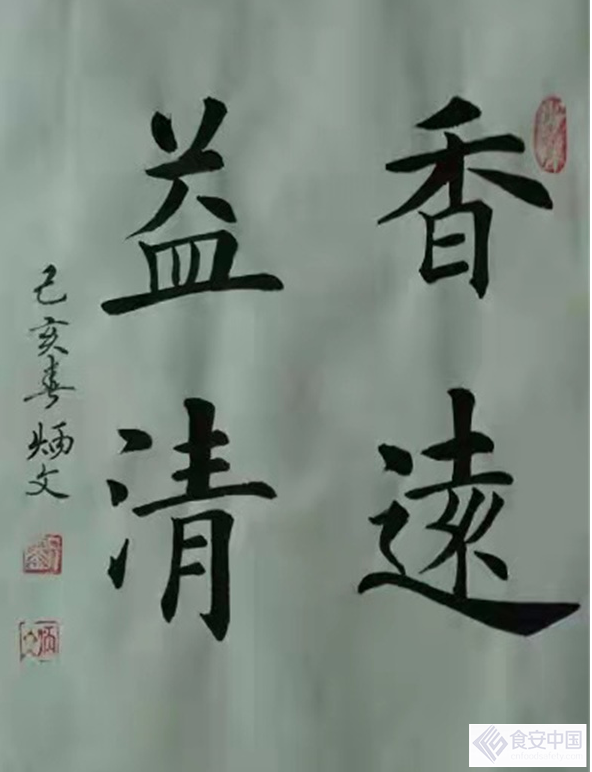 香遠
益清
己亥春炳文
食安中国